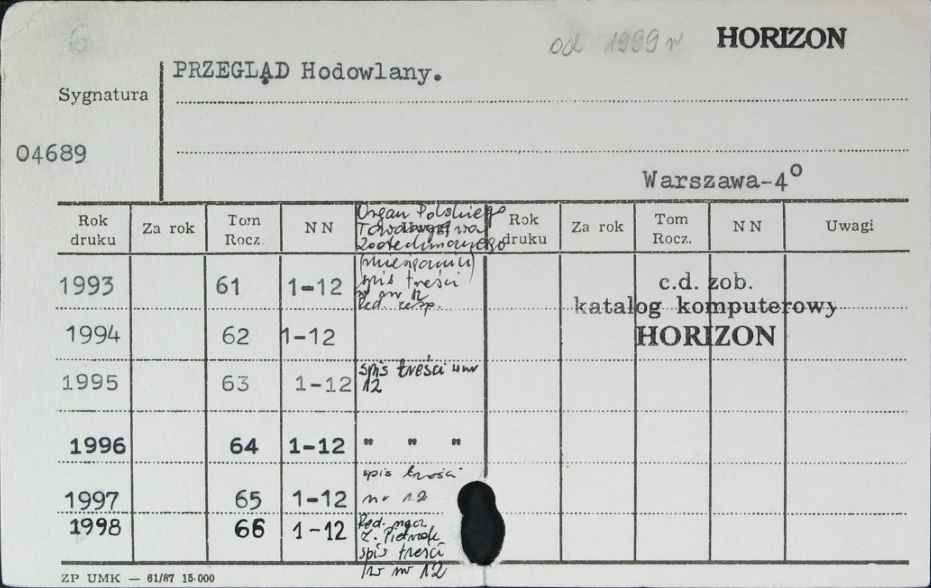 od 1999 r HORIZON
PRZEGLĄD Hodowlany.
Sygnatura
04689
Warszawa-4º
Rok druku Za rok Tom Rocz. N N Organ Polskiego Towarzystwa Zootechnicznego Rok druku Za rok Tom Rocz. N N Uwagi
1993 61 1-12 (miesięcznik) spis treści w nr 12
c.d. zob.
katalog komputerowy
HORIZON
1994 62 1-12
1995 63 1-12 spis treści w nr 12
1996 64 1-12 " " "
spis treści
1997 65 1-12 nr 12
1998 66 1-12 Red. nacz.
spis treści
w nr 12
ZP UMK — 61/87 15.000